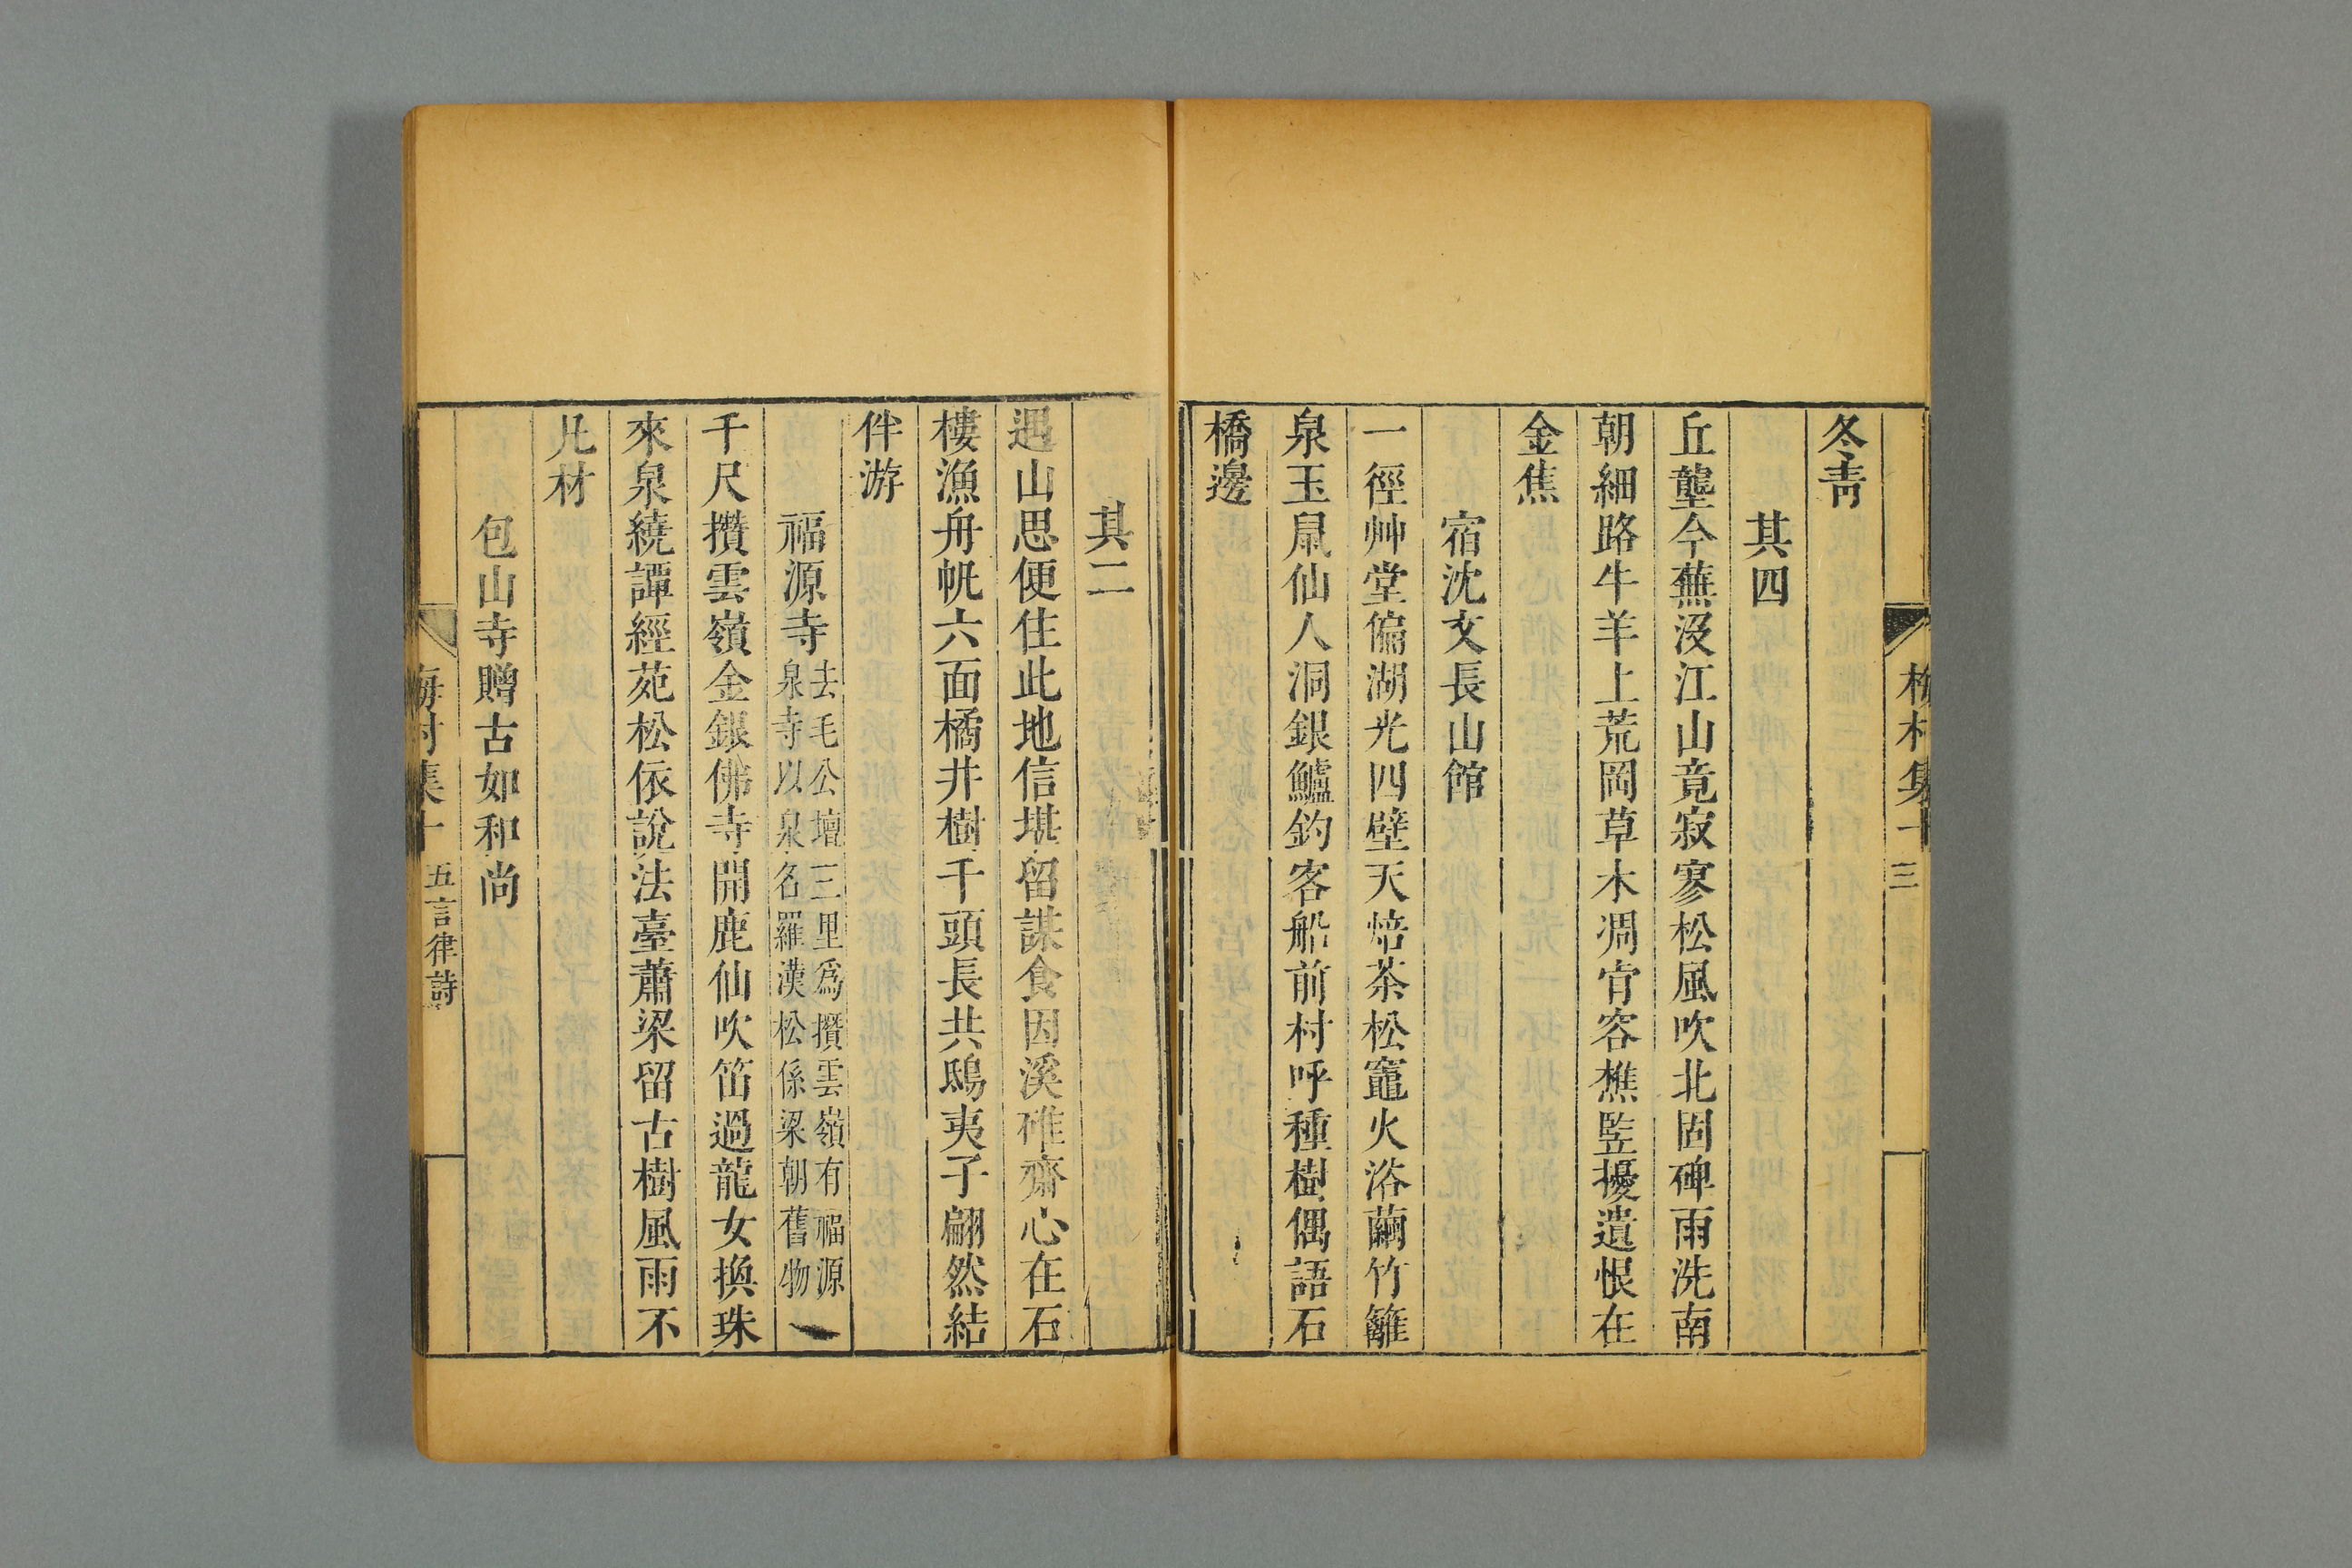 梅村集十
三
冬青
其四
丘壟今蕪沒江山竟寂寥松風吹北固碑雨洗南
朝細路牛羊上荒岡草木凋肯容樵豎擾遺恨在
金焦
宿沈文長山館
一徑艸堂偏湖光四壁天焙茶松竈火浴繭竹籬
泉玉鼠仙人洞銀鱸釣客船前村呼種樹偶語石
橋邊
其二
遇山思便住此地信堪留謀食因溪碓齋心在石
樓漁舟帆六面橘井樹千頭長共鴟夷子翩然結
伴游
福源寺去毛公壇三里爲攢雲嶺有福源
泉寺以泉名羅漢松係梁朝舊物
千尺攢雲嶺金銀佛寺開鹿仙吹笛過龍女換珠
來泉繞譚經苑松依說法臺蕭梁留古樹風雨不
凡材
包山寺贈古如和尚
梅村集十
五言律詩